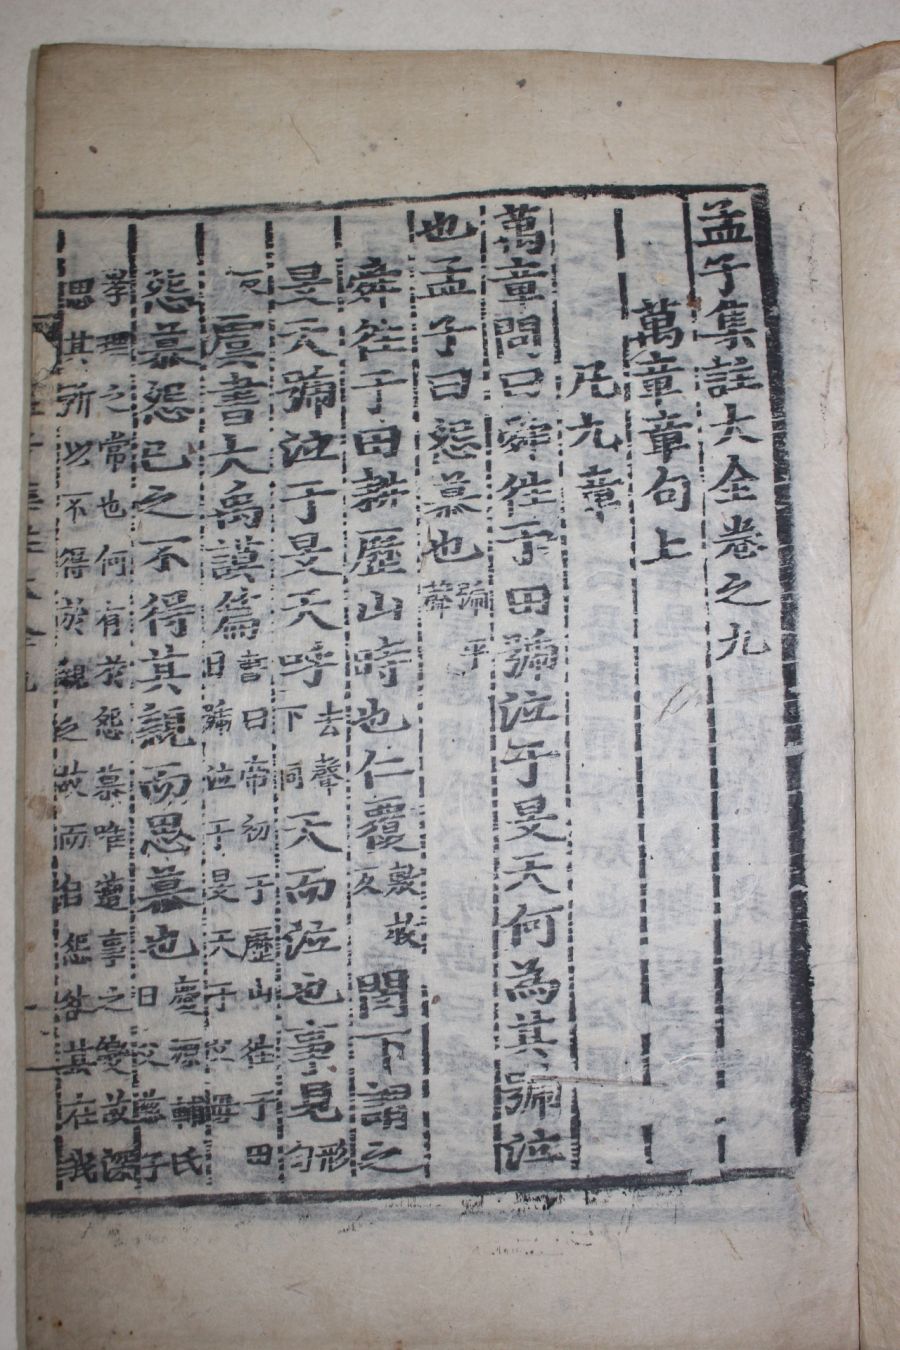 孟子集註大全卷之九
萬章章句上
凡九章
萬章問曰舜往于田號泣于旻天何為其號泣
也孟子曰怨慕也號平聲
舜往于田耕歷山時也仁覆敷救反閔下謂之
旻天號泣于旻天呼去聲下同天而泣也事見形匂
反虞書大禹謨篇書曰帝初于歷山往于田日號泣于旻天于父母
怨慕怨己之不得其親而思慕也慶源輔氏曰父慈子
孝理之常也何有於怨慕唯遭事之變故深
思其所以不得於親之故而自怨咎其在我